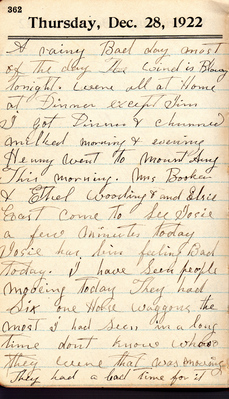 362
Thursday, Dec. 28, 1922
A rainy Bad day most
of the day The wind is Blowing
tonight. Were all at Home
at Dinner except Jim
I got Dinner & churned
milked morning & evening
Henny went to Mount Airy
This morning. Mrs Booker
& Ethel Wooding & and Elsie
East come to see Josie
a few minutes today
Josie has bin feeling Bad
today. I have seen people
moveing today They had
Six one Horse waggons the
most I had seen in a long
time dont know whoos
they were that was moveing
They had a bad time for it